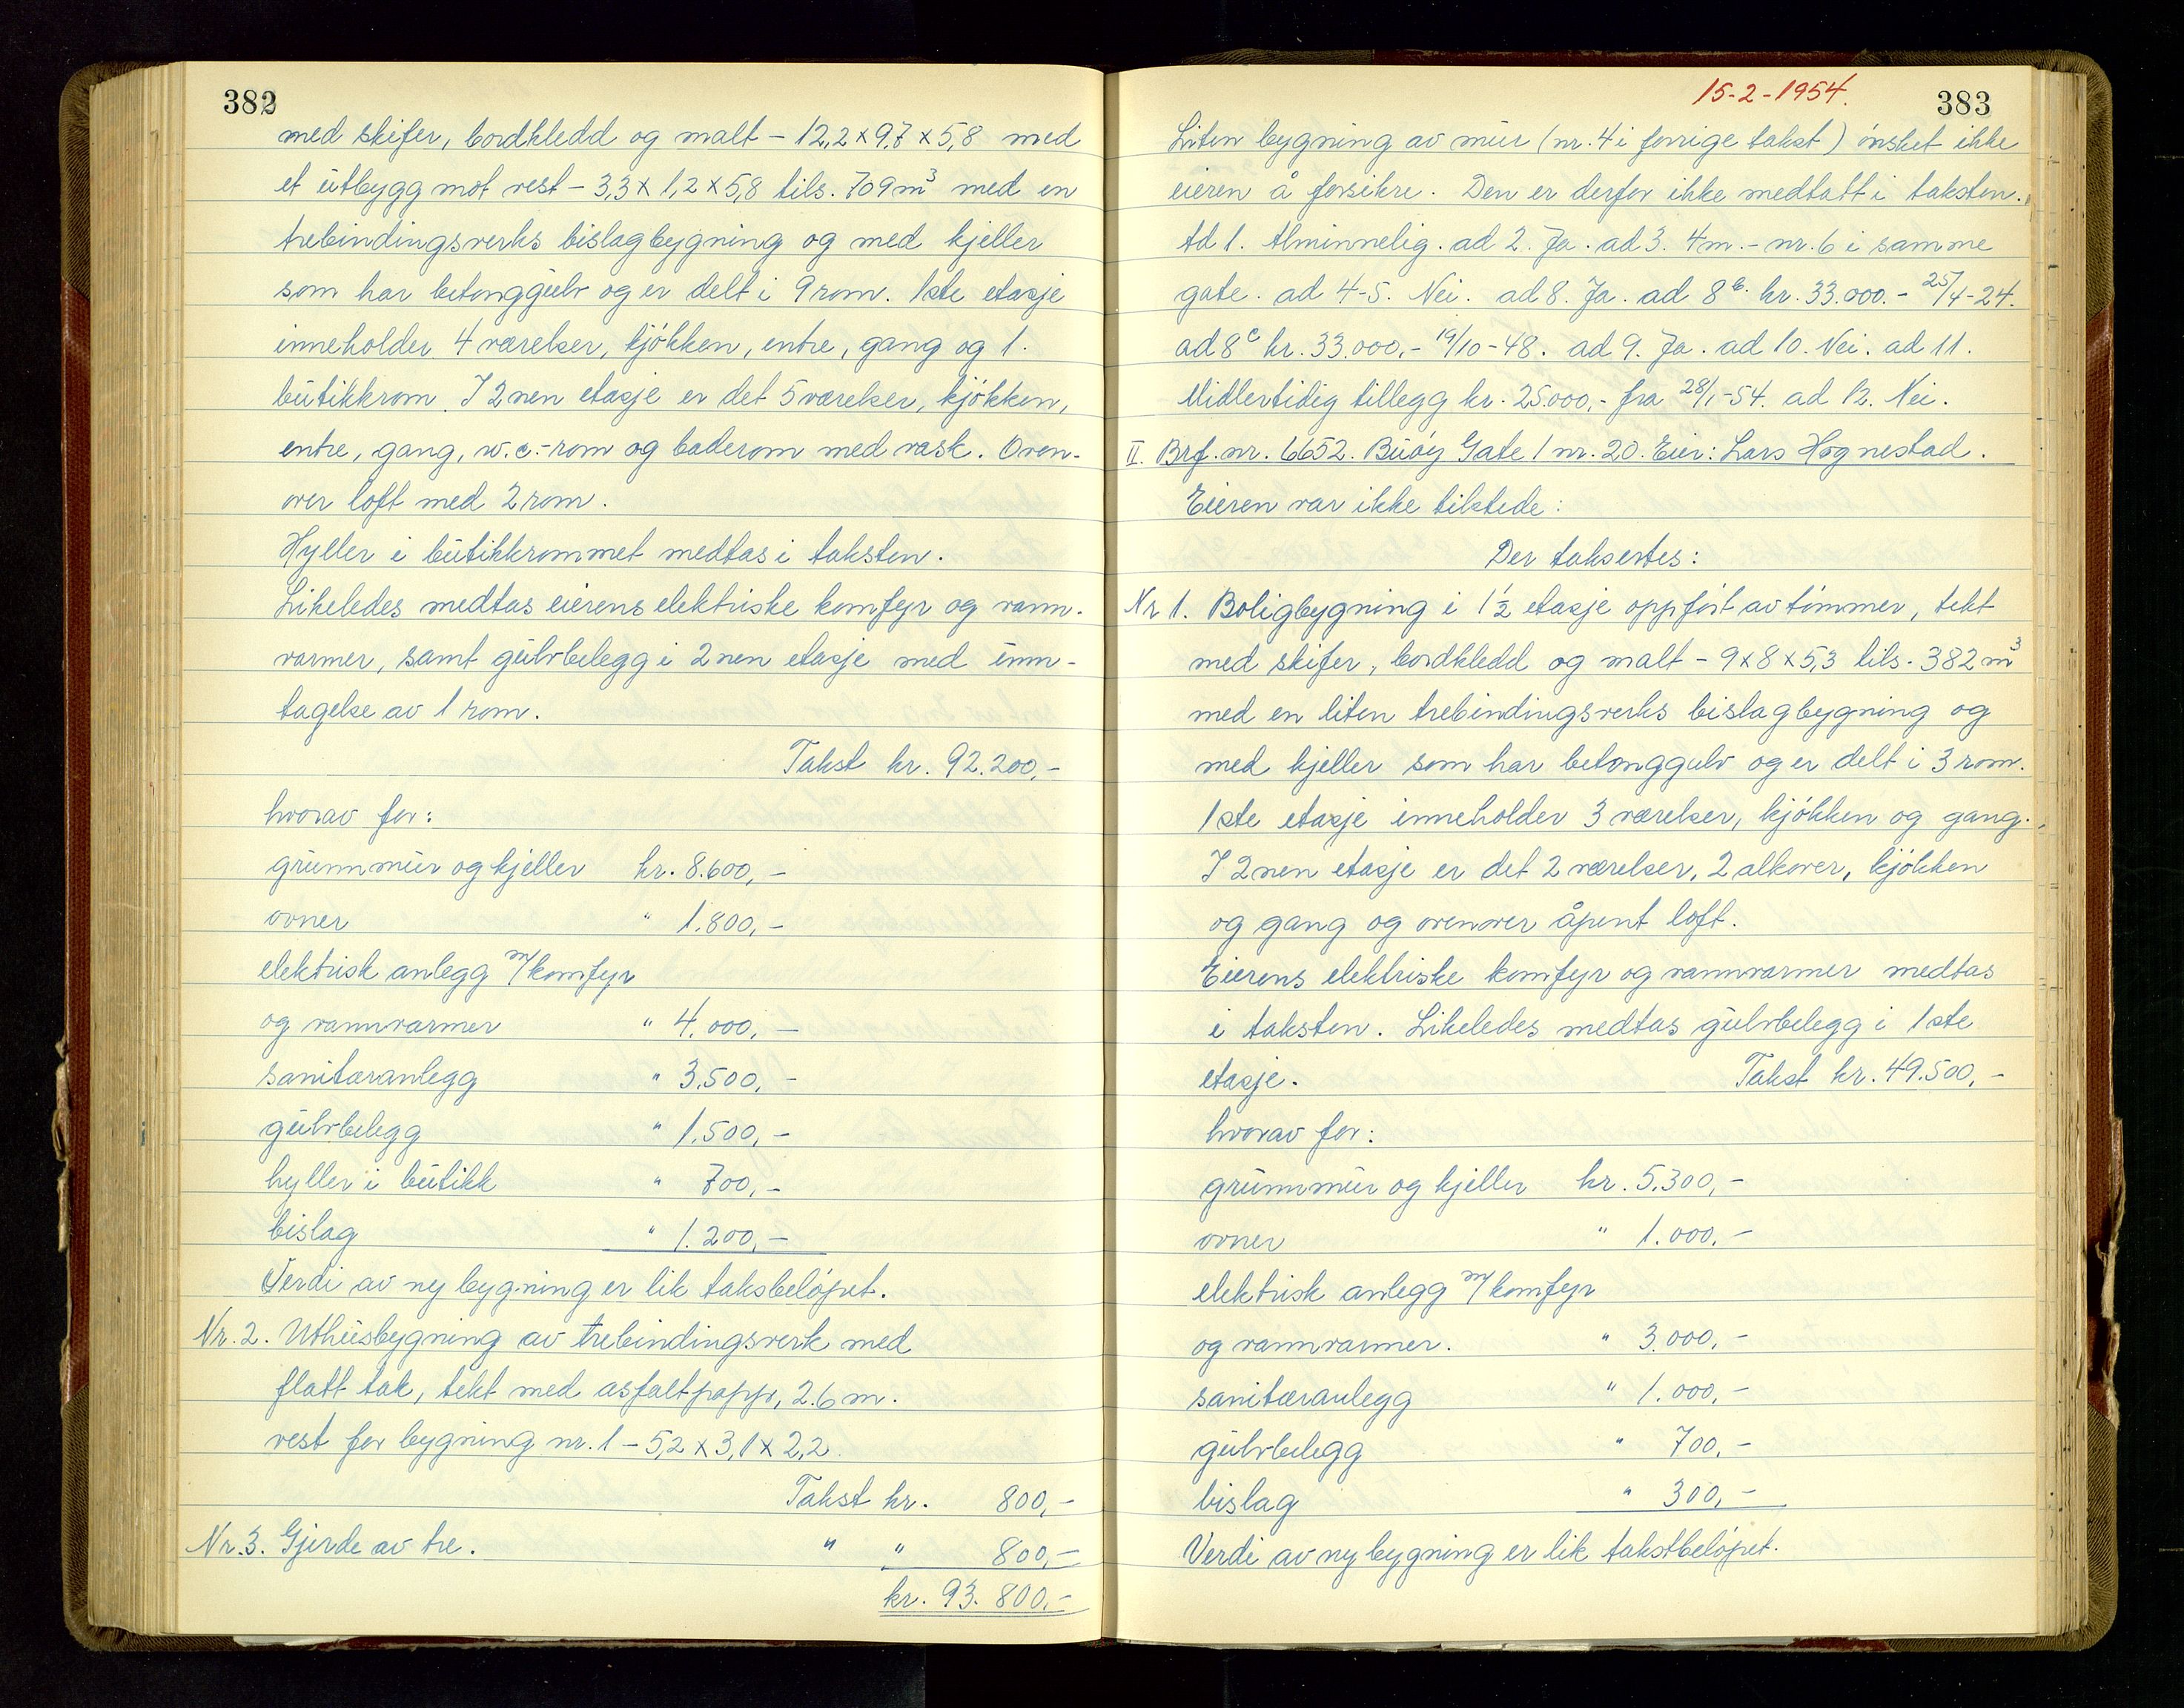 382
med skifer, bordkledd og malt – 12,2 x 9,7 x 5,8 med
et utbygg mot vest – 3,3 x 1,2 x 5,8 tils. 709 m³ med en
trebindingsverks bislagbygning og med kjeller
som har betonggulv og er delt i 9 rom. 1ste etasje
inneholder 4 værelser, kjøkken, entre, gang og 1.
butikkrom. I 2nen etasje er det 5 værelser, kjøkken,
entre, gang, w.c.-rom og baderom med vask. Oven-
over loft med 2 rom.
Hyller i butikkrommet medtas i taksten.
Likeledes medtas eierens elektriske komfyr og vann-
varmer, samt gulvbelegg i 2nen etasje med unn-
tagelse av 1 rom.
Takst kr. 92.200,-
hvorav for:
grunnmur og kjeller kr. 8.600,-
ovner " 1.800,-
elektrisk anlegg m/komfyr
og vannvarmer " 4.000,-
sanitæranlegg " 3.500,-
gulvbelegg " 1.500,-
hyller i butikk " 700,-
bislag " 1.200,-
Verdi av ny bygning er lik taksbeløpet.
Nr. 2. Uthusbygning av trebindingsverk med
flatt tak, tekt med asfaltpapp, 2.6 m.
vest for bygning nr. 1 – 5,2 x 3,1 x 2,2.
Takst kr. 800,-
Nr. 3. Gjerde av tre. " " 800,-
kr. 93.800,-
15-2-1954.
383
Liten bygning av mur (nr. 4 i forrige takst) ønsket ikke
eieren å forsikre. Den er derfor ikke medtatt i taksten.
Ad 1. Alminnelig. ad 2. Ja. ad 3. 4 m. – nr. 6 i samme
gate. ad 4-5. Nei. ad 8. Ja. ad 8 b. kr. 33.000.- 25/4-24.
ad 8 c kr. 33.000,- 19/10-48. ad 9. Ja. ad 10. Nei. ad 11.
Midlertidig tillegg kr. 25.000,- fra 28/1-54. ad 12. Nei.
II. Brf. nr. 6652. Buøy Gate 1 nr. 20. Eier: Lars Hognestad.
Eieren var ikke tilstede:
Der taksertes:
Nr 1. Boligbygning i 1½ etasje oppført av tømmer, tekt
med skifer, bordkledd og malt – 9 x 8 x 5,3 tils. 382 m³
med en liten trebindingsverks bislagbygning og
med kjeller som har betonggulv og er delt i 3 rom.
1ste etasje inneholder 3 værelser, kjøkken og gang.
I 2nen etasje er det 2 værelser, 2 alkover, kjøkken
og gang og ovenover åpent loft.
Eierens elektriske komfyr og vannvarmer medtas
i taksten. Likeledes medtas gulvbelegg i 1ste
etasje. Takst kr. 49.500,-
hvorav for:
grunnmur og kjeller kr. 5.300,-
ovner " 1.000.-
elektrisk anlegg m/komfyr
og vannvarmer. " 3.000,-
sanitæranlegg " 1.000,-
gulvbelegg " 700,-
bislag " 300,-
Verdi av ny bygning er lik takstbeløpet.